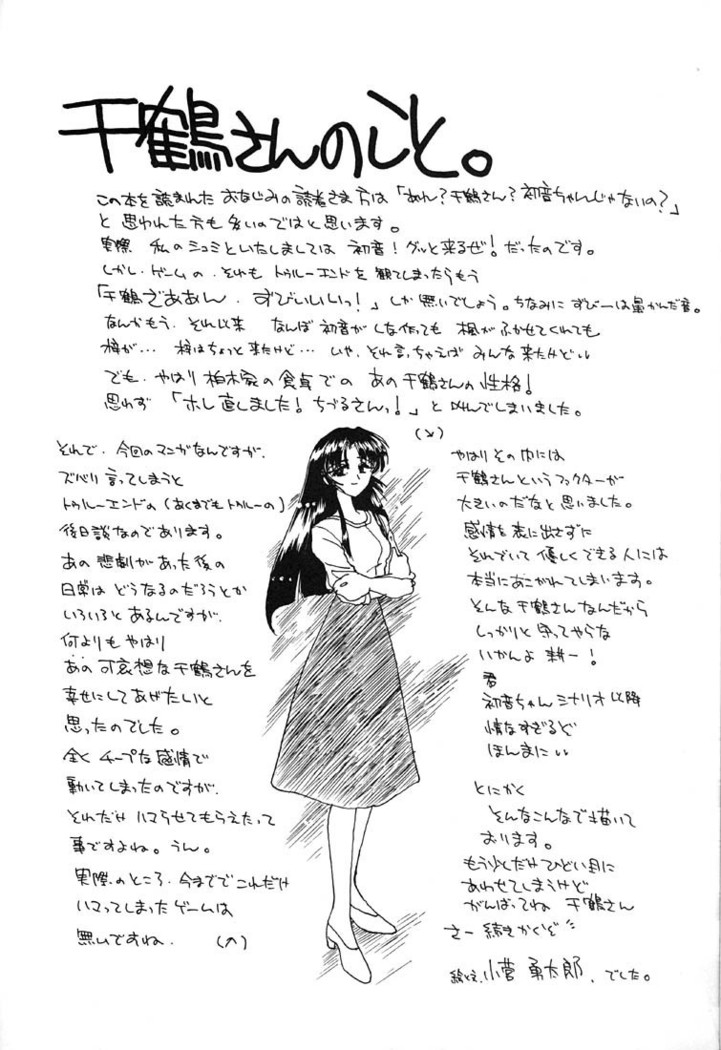 千鶴さんのこと。
この本を読まれた おなじみの読者さま方は「あれ？千鶴さん？初音ちゃんじゃないの？」
と 思われた方も 多いのではと思います。
実際 私のシュミといたしましては 初音！グッと来るぜ！だったのです。
しかし、ゲームの、それも トゥルーエンドを 観てしまったらもう
「千鶴ざああん、ずびいいいっ！」しか無いでしょう。ちなみに ずびーは鼻かんだ音。
なんかもう、それ以来 なんぼ 初音が しな作っても 楓が ふかせてくれても
梓が… 梓はちょっと来たけど… いや、それ言っちゃえば みんな来たけどい
でも、やはり 柏木家の食卓での あの千鶴さんの性格！
思わず「ホレ直しました！ちづるさんっ！」と叫んでしまいました。
それで、今回のマンガなんですが、
ズバリ言ってしまうと
トゥルーエンドの（あくまでもトゥルーの）
後日談なのであります。
あの悲劇があった後の
日常は どうなるのだろうとか
いろいろと あるんですが、
何よりも やはり
あの 可哀想な千鶴さんを
幸せにしてあげたいと
思ったのでした。
全く チープな感情で
動いてしまったのですが、
それだけ ハマらせてもらえたって
事ですよね。うん。
実際のところ、今までで これだけ
ハマってしまったゲームは
無いですね。（へ）
（と）
やはり その中には
千鶴さんというファクターが
大きいのだなと思いました。
感情を表に出さずに
それでいて優しくできる人には
本当にあこがれてしまいます。
そんな千鶴さんなんだから
しっかりと 守ってやらな
いかんよ 耕一！
君
初音ちゃんシナリオ以降
情なすぎるど
ほんまにい
とにかく
そんなこんなで描いて
おります。
もう少しだけひどい目に
あわせてしまうけど
がんばってね 千鶴さん
さー 続きかくぞ
絵と文、小菅 勇太郎、でした。